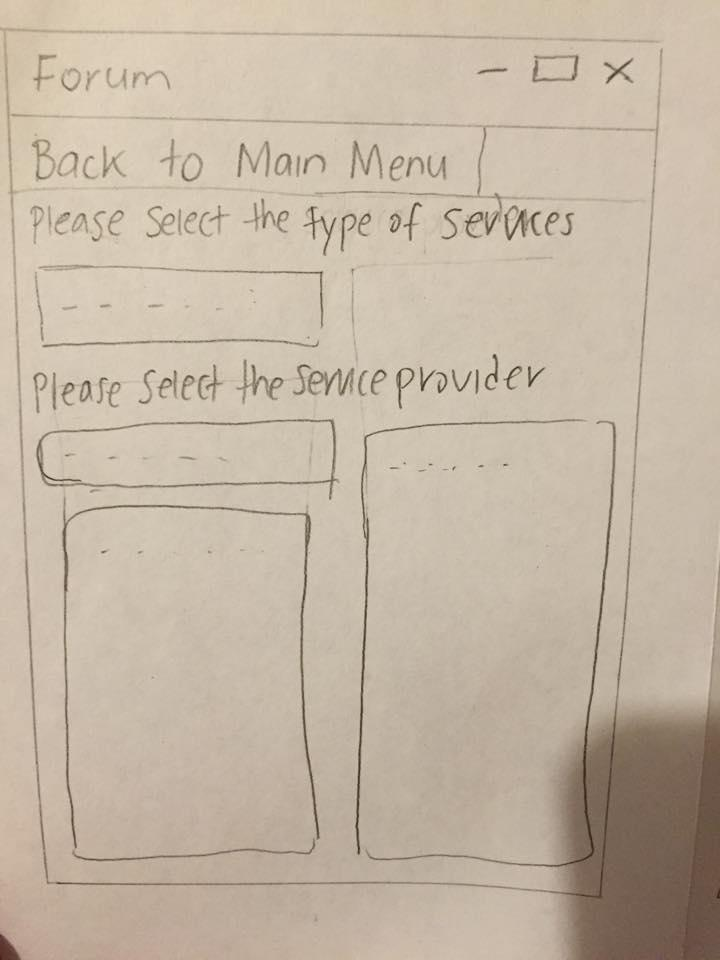 Forum
Back to Main Menu
Please Select the type of Services
Please Select the Service provider